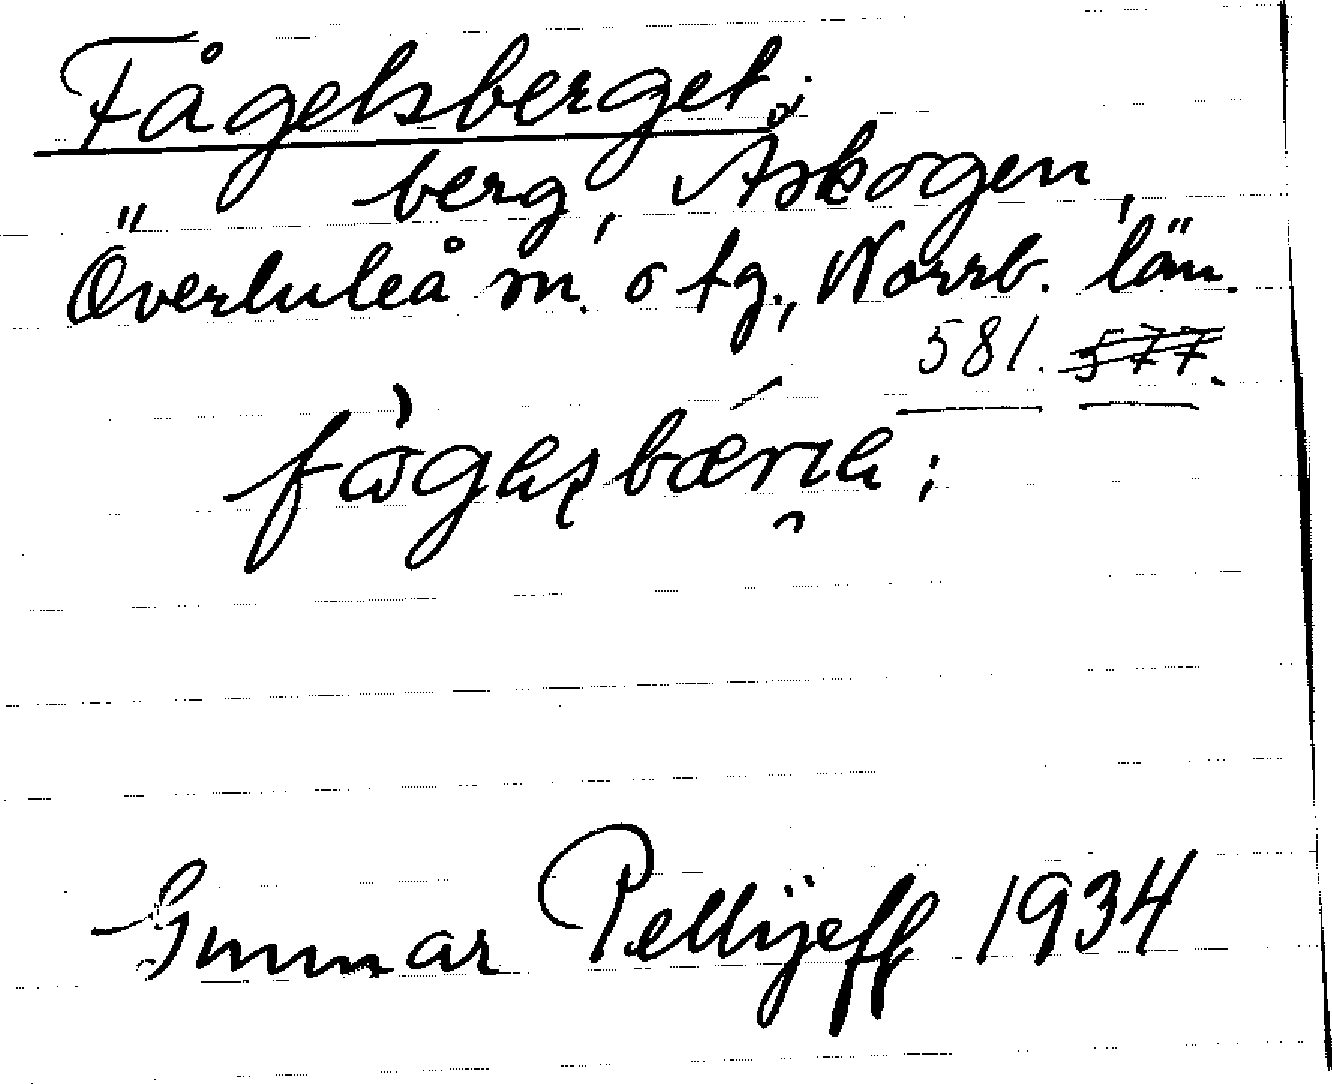 Fågelsberget;
berg, Åskogen,
Överluleå sn. o tg., Norrb. län.
581. 577.
Gunnar Pellijeff 1934